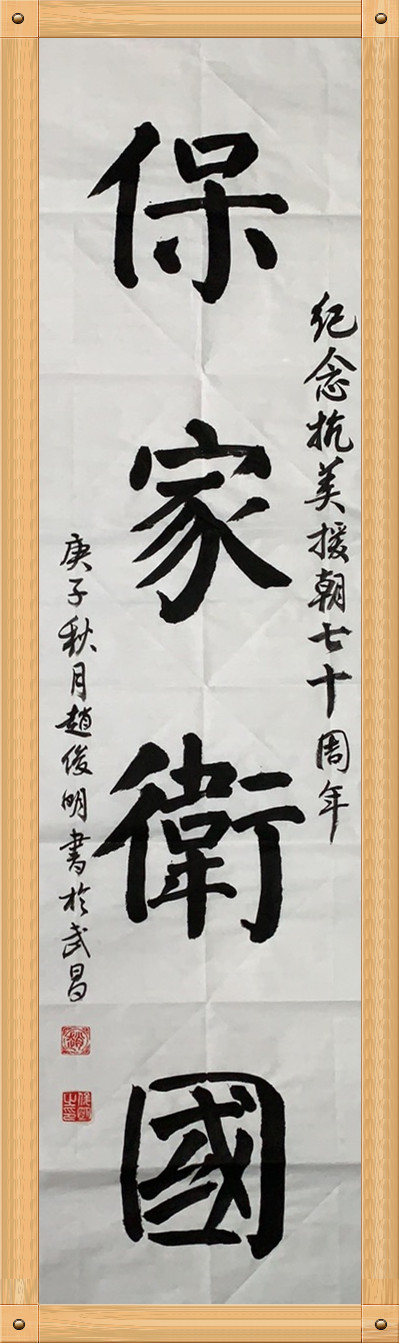 纪念抗美援朝七十周年
保家衛國
庚子秋月趙俊明書於武昌